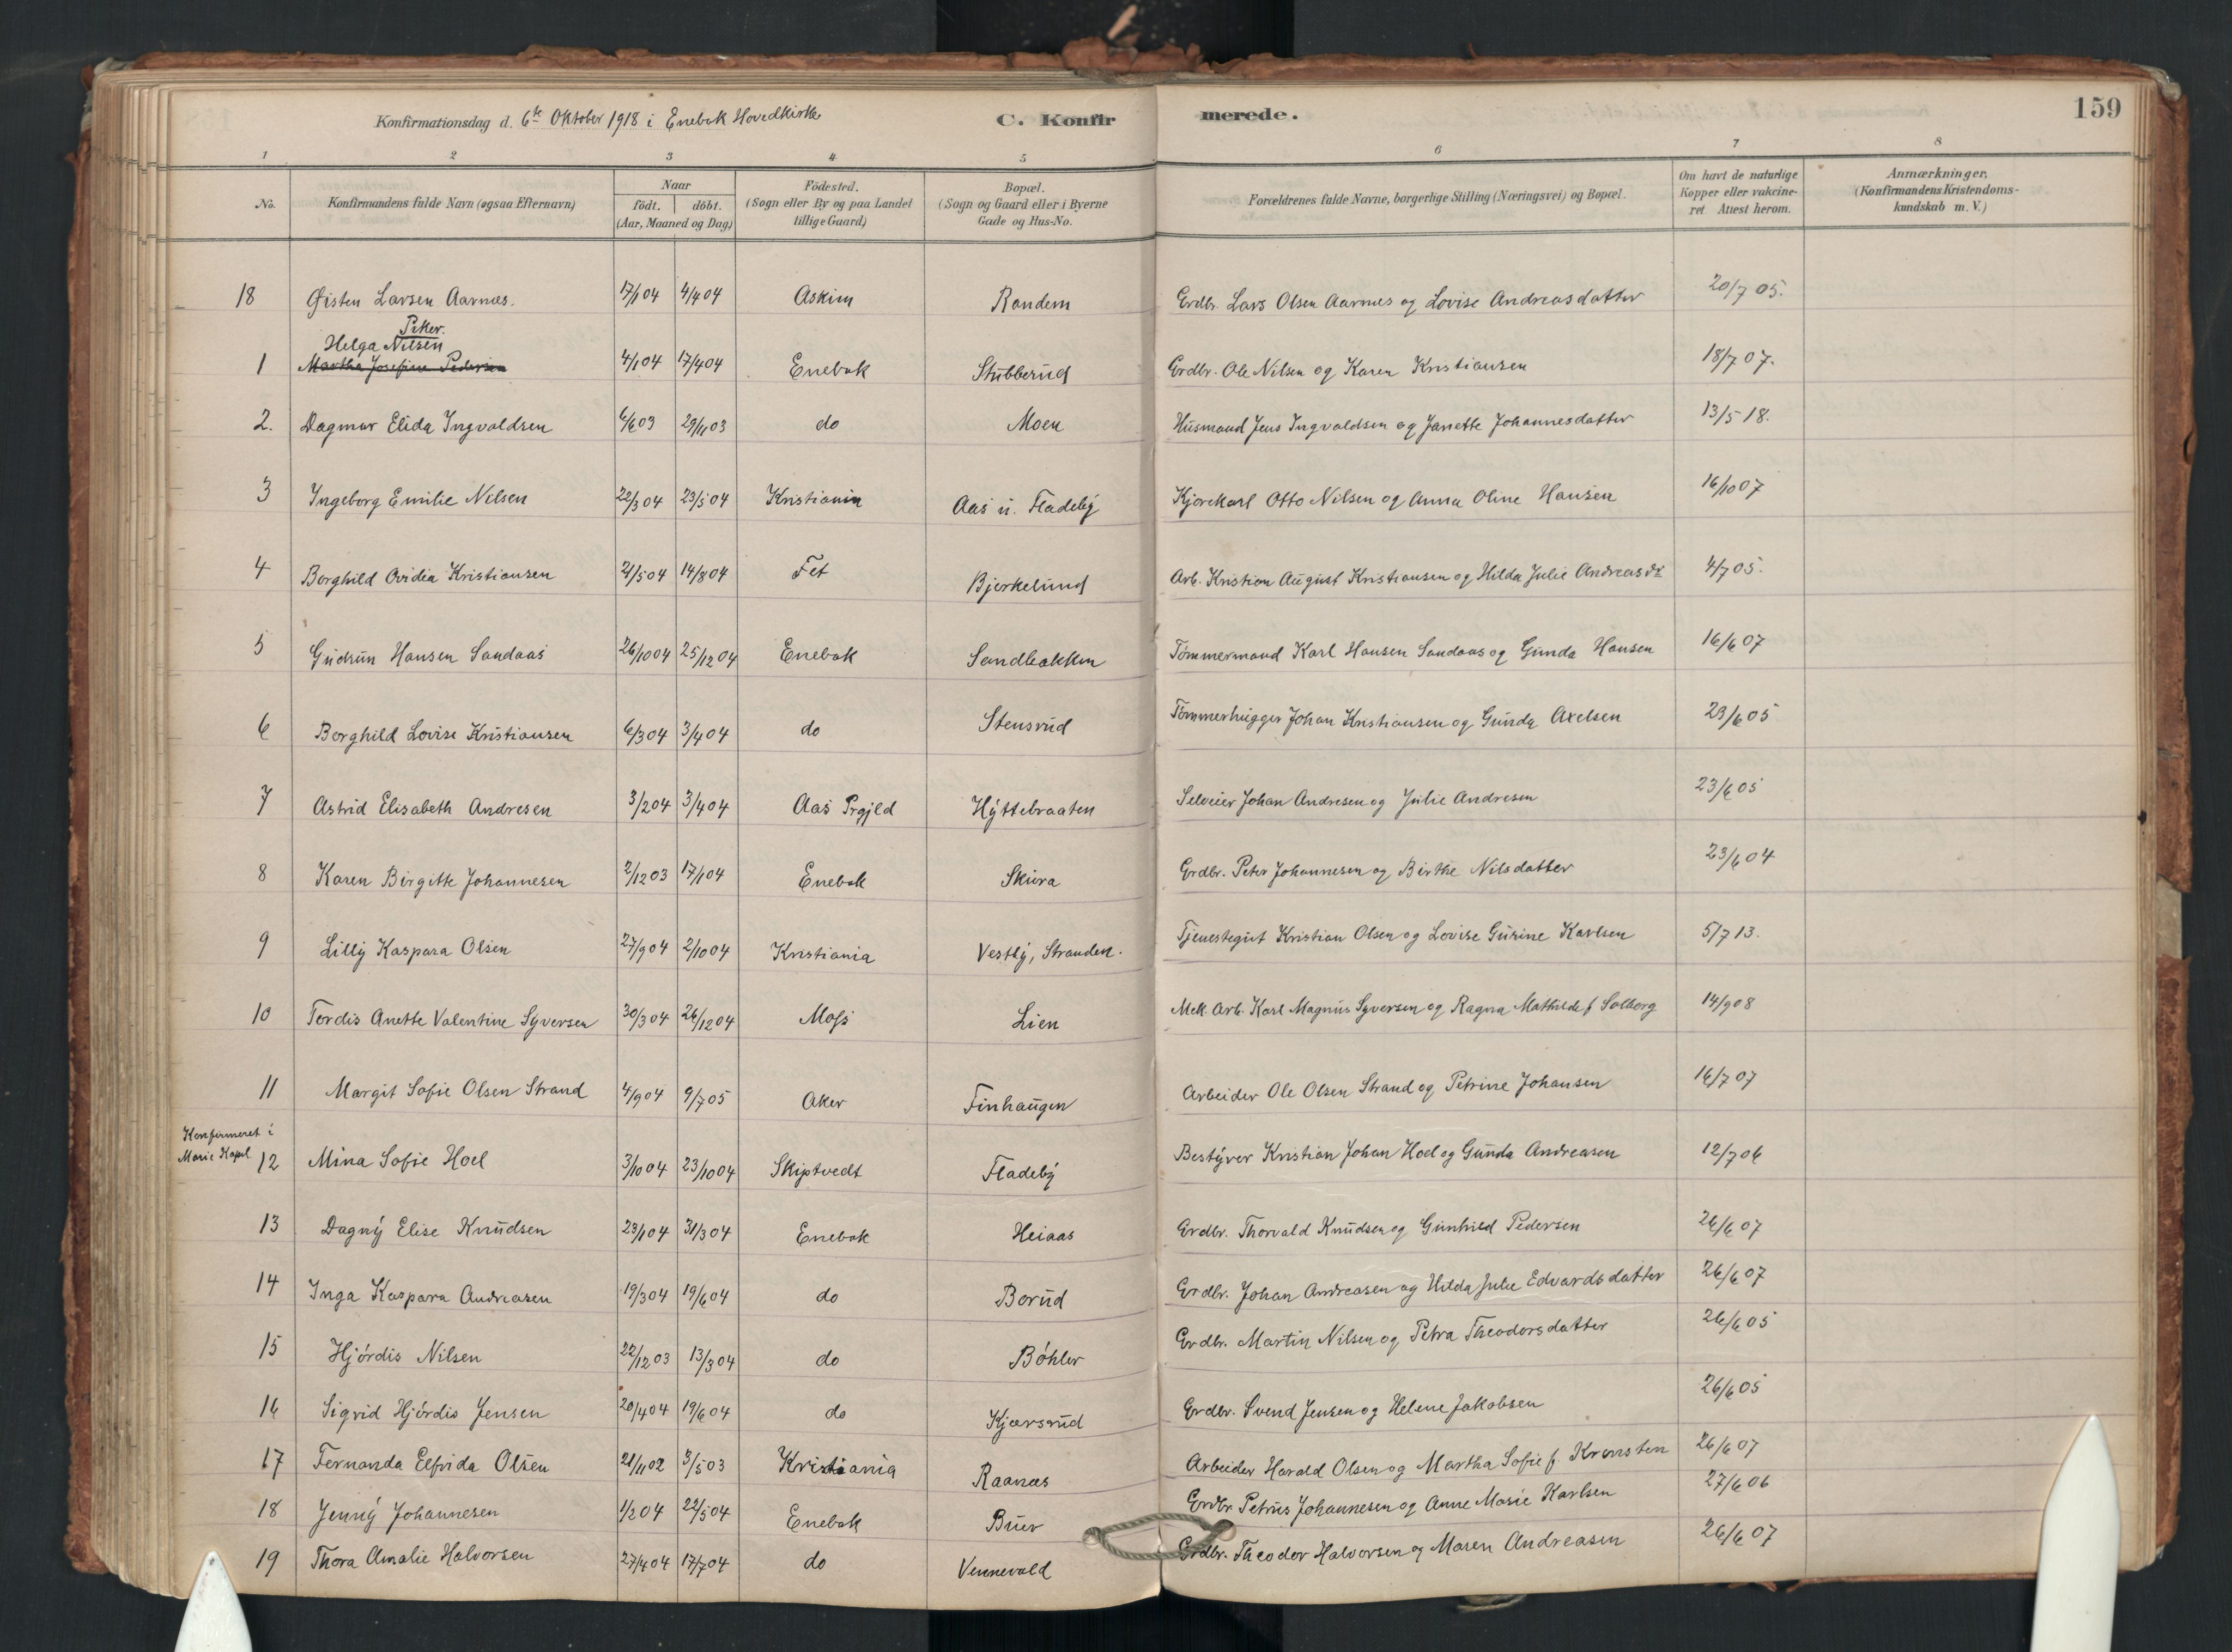 Konfirmationsdag d. 6te Oktober 1918 i Enebak Hovedkirke
C. Konfirmerede.
159
1 2 3 4 5 6 7 8
No.
Konfirmandens fulde Navn (ogsaa Efternavn)
Naar
født. døbt.
(Aar, Maaned og Dag)
Fødested.
(Sogn eller By og paa Landet
tillige Gaard)
Bopæl.
(Sogn og Gaard eller i Byerne
Gade og Hus-No.
Forældrenes fulde Navne, borgerlige Stilling (Næringsvei) og Bopæl.
Om havt de naturlige
Kopper eller vakcine-
ret Attest herom.
Anmærkninger.
(Konfirmandens Kristendoms-
kundskab m. V.)
18 Øisten Larsen Aarnæs. 17/1 04 4/4 04 Askim Randem Grdbr. Lars Olsen Aarnæs og Lovise Andreasdatter 20/7 05.
Piker.
Helga Nilsen
1 Martha Josefine Pedersen 4/1 04 17/4 04 Enebak Stubberud Grdbr. Ole Nilsen og Karen Kristiansen 18/7 07.
2. Dagmar Elida Ingvaldsen 6/6 03 29/11 03 do Moen Husmand Jens Ingvaldsen og Janette Johannesdatter 13/5 18.
3 Ingeborg Emilie Nilsen 22/3 04 23/5 04 Kristiania Aas u. Fladeby Kjørekarl Otto Nilsen og Anna Oline Hansen 16/10 07
4 Borghild Ovidia Kristiansen 21/5 04 14/8 04 Fet Bjerkelund Arb. Kristian August Kristiansen og Hilda Julie Andreasdr 4/7 05.
5 Gudrun Hansen Sandaas 26/10 04 25/12 04 Enebak Sandbakken Tømmermand Karl Hansen Sandaas og Gunda Hansen 16/6 07
6 Borghild Lovise Kristiansen 6/3 04 3/4 04 do Stensrud Tømmerhugger Johan Kristiansen og Gunda Axelsen 23/6 05
7 Astrid Elisabeth Andresen 3/2 04 3/4 04 Aas Prgjld Hyttebraaten Selveier Johan Andresen og Julie Andresen 23/6 05
8 Karen Birgitte Johannesen 2/12 03 17/1 04 Enebak Skura Grdbr. Peter Johannesen og Birthe Nilsdatter 23/6 04
9 Lilly Kaspara Olsen 27/9 04 2/10 04 Kristiania Vestby, Stranden. Tjenestegut Kristian Olsen og Lovise Gurine Karlsen 5/7 13.
10 Tordis Anette Valentine Syversen 30/3 04 26/12 04 Moss Lien Mek. Arb. Karl Magnus Syversen og Ragna Mathilde f Solberg 14/9 08
11 Margit Sofie Olsen Strand 4/9 04 9/7 05 Aker Finhaugen Arbeider Ole Olsen Strand og Petrine Johansen 16/7 07
Konfirmeret i
Marie Kapel 12 Mina Sofie Hoel 3/10 04 23/10 04 Skiptvedt Fladeby Bestyrer Kristian Johan Hoel og Gunda Andreasen 12/7 06
13 Dagny Elise Knudsen 23/1 04 31/3 04 Enebak Heiaas Grdbr. Thorvald Knudsen og Gunhild Pedersen 26/6 07
14 Inga Kaspara Andreasen 19/3 04 19/6 04 do Borud Grdbr. Johan Andreasen og Hilda Julie Edvardsdatter 26/6 07
15 Hjørdis Nilsen 22/12 03 13/3 04 do Bøhler Grdbr. Martin Nilsen og Petra Theodorsdatter 26/6 05
16 Sigrid Hjørdis Jensen 20/4 04 19/6 04 do Kjærsrud Grdbr. Svend Jensen og Helene Jakobsen 26/6 05
17 Fernanda Elfrida Olsen 21/11 02 3/5 03 Kristiania Raanaas Arbeider Harald Olsen og Martha Sofie f. 26/6 07
18 Jenny Johannesen 1/2 04 22/5 04 Enebak Buer Grdbr. Petrus Johannesen og Anne Marie Karlsen 27/6 06
19 Thora Amalie Halvorsen 27/4 04 17/7 04 do Vennevald Grdbr. Theodor Halvorsen og Maren Andreasen 26/6 07